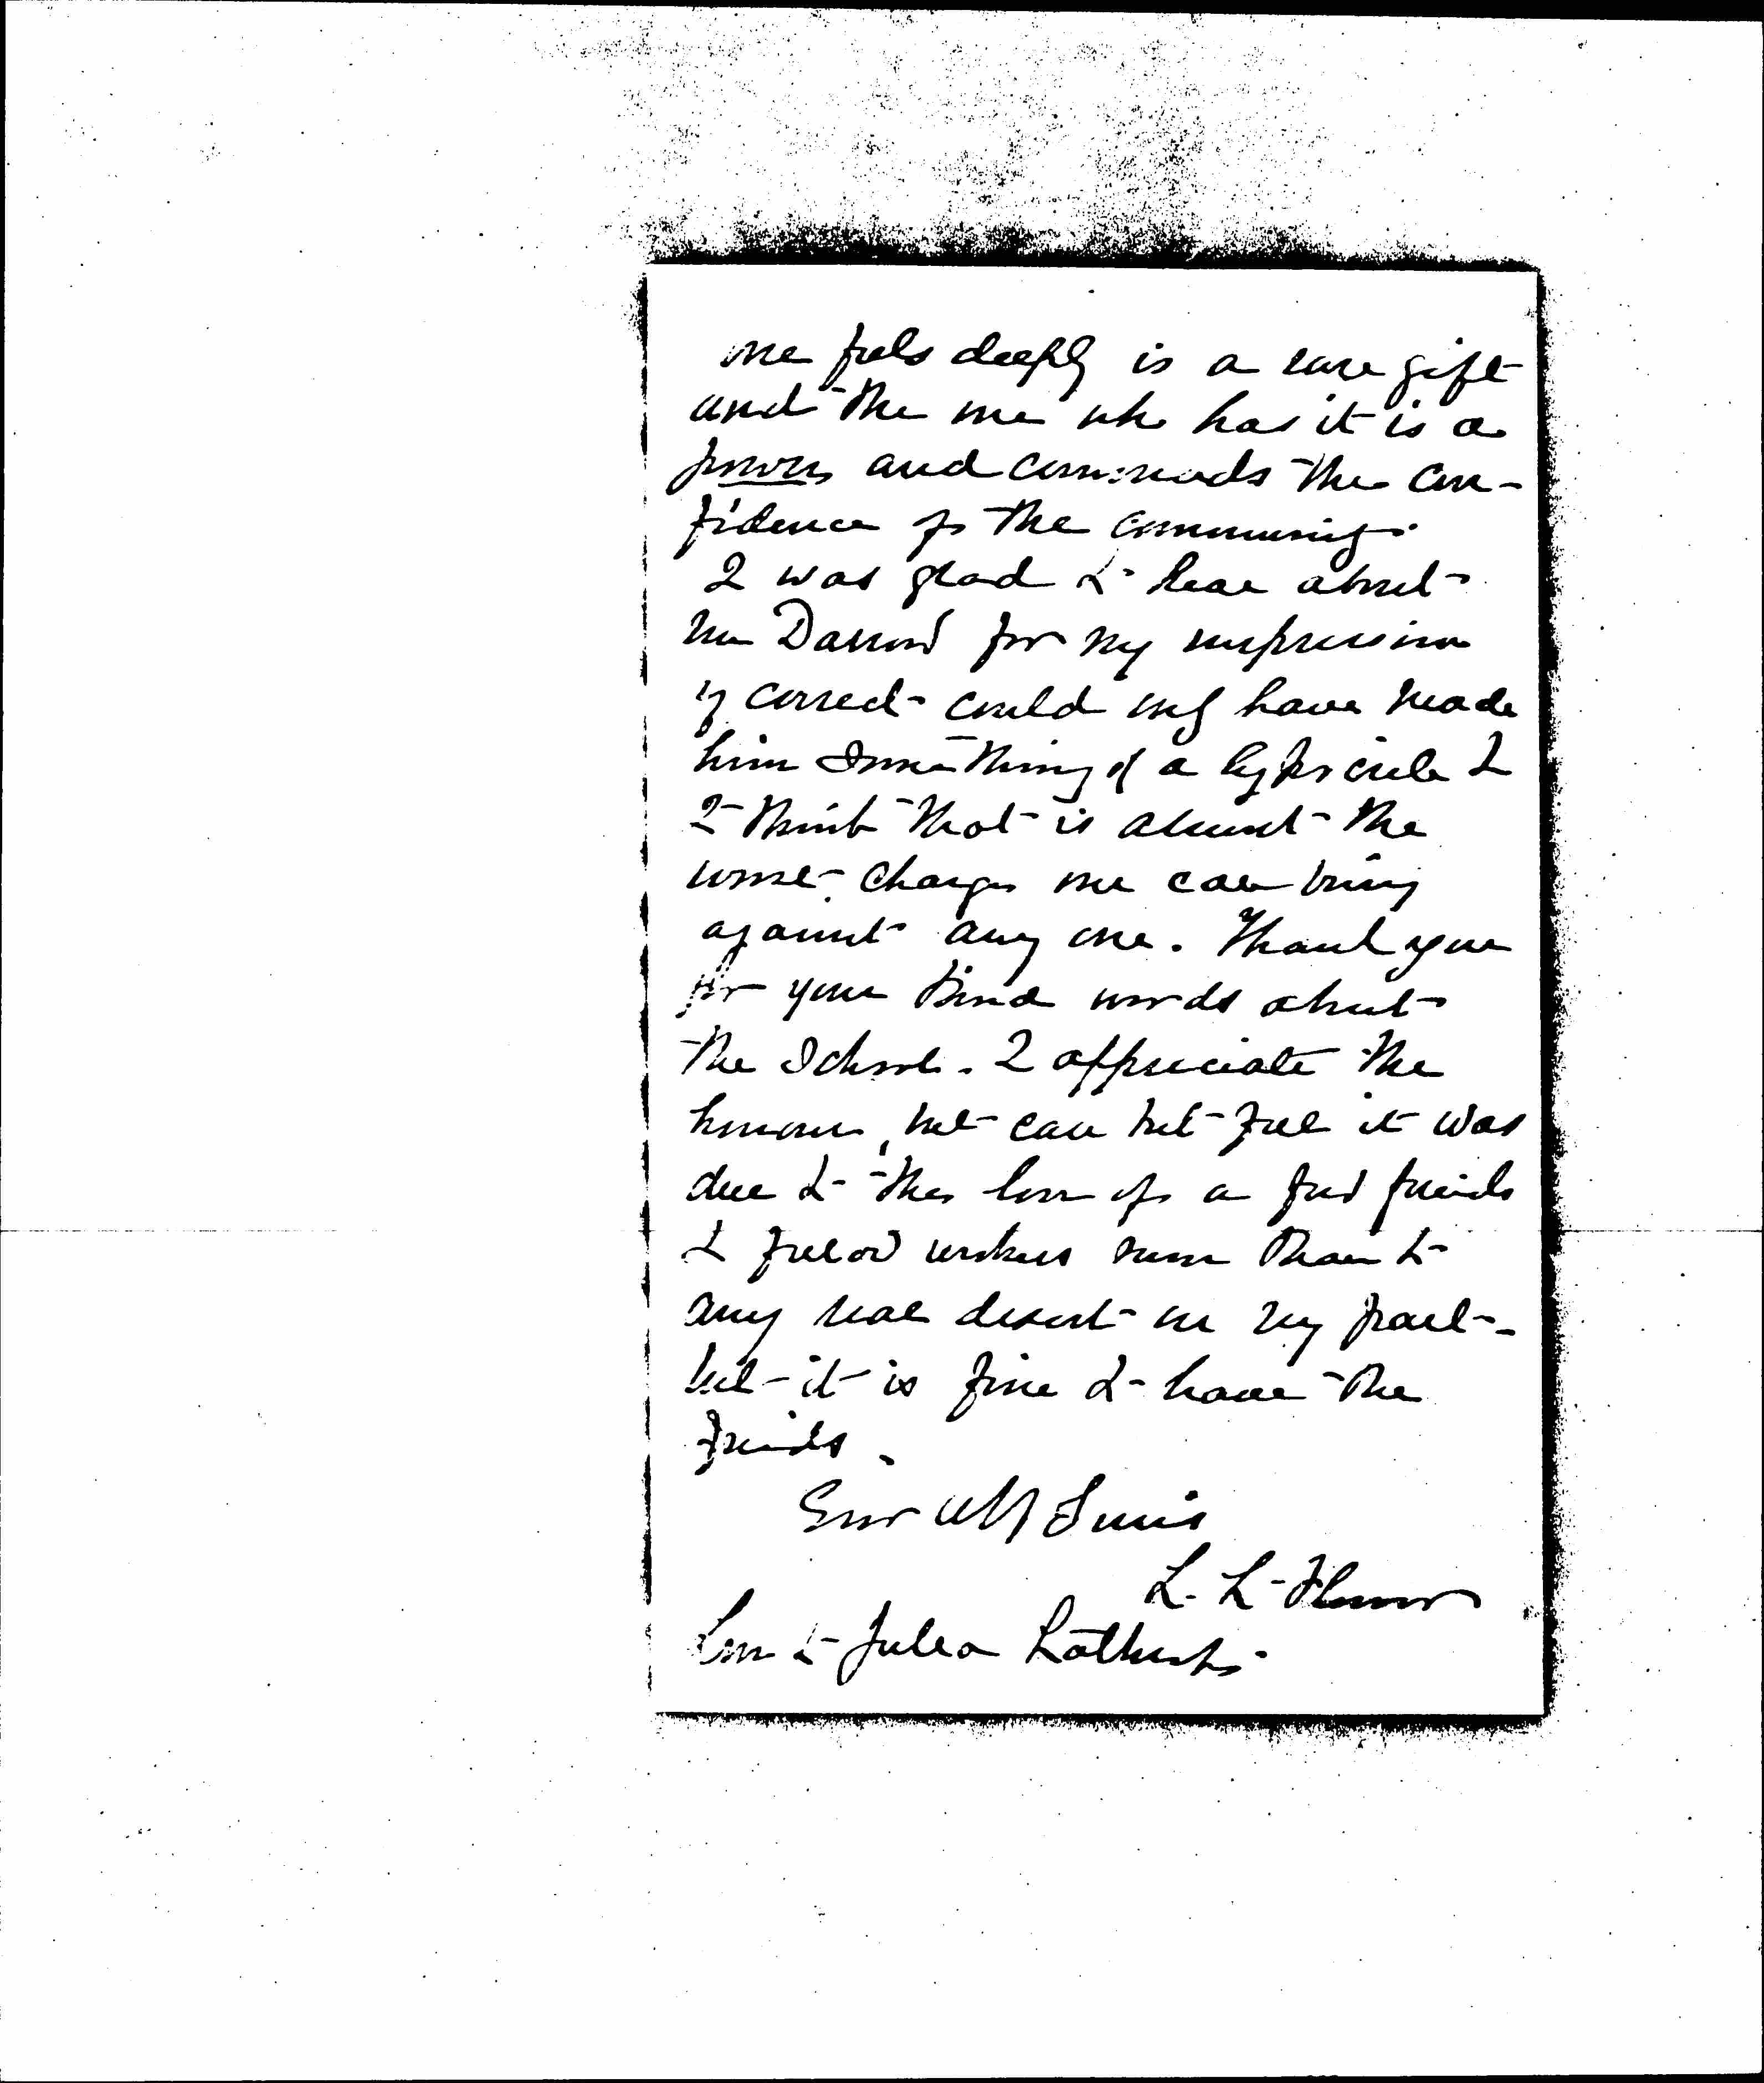 one feels deeply is a rare gift
and the one who has it is a
power and commands the con-
fidence of the community.
I was glad to hear about
Mr Darrow for my impression
if correct could only have made
him something of a hypocrite &
I think that is about the
worse charge one can bring
against any one. Thank you
for your kind words about
the School. I appreciate the
honour, but can but feel it was
due to the love of a few friends
& fellow workers more than to
any real desert on my part-
but it is fine to have the
friends.
Ever
L. L.
Love to Julia Lathrop.